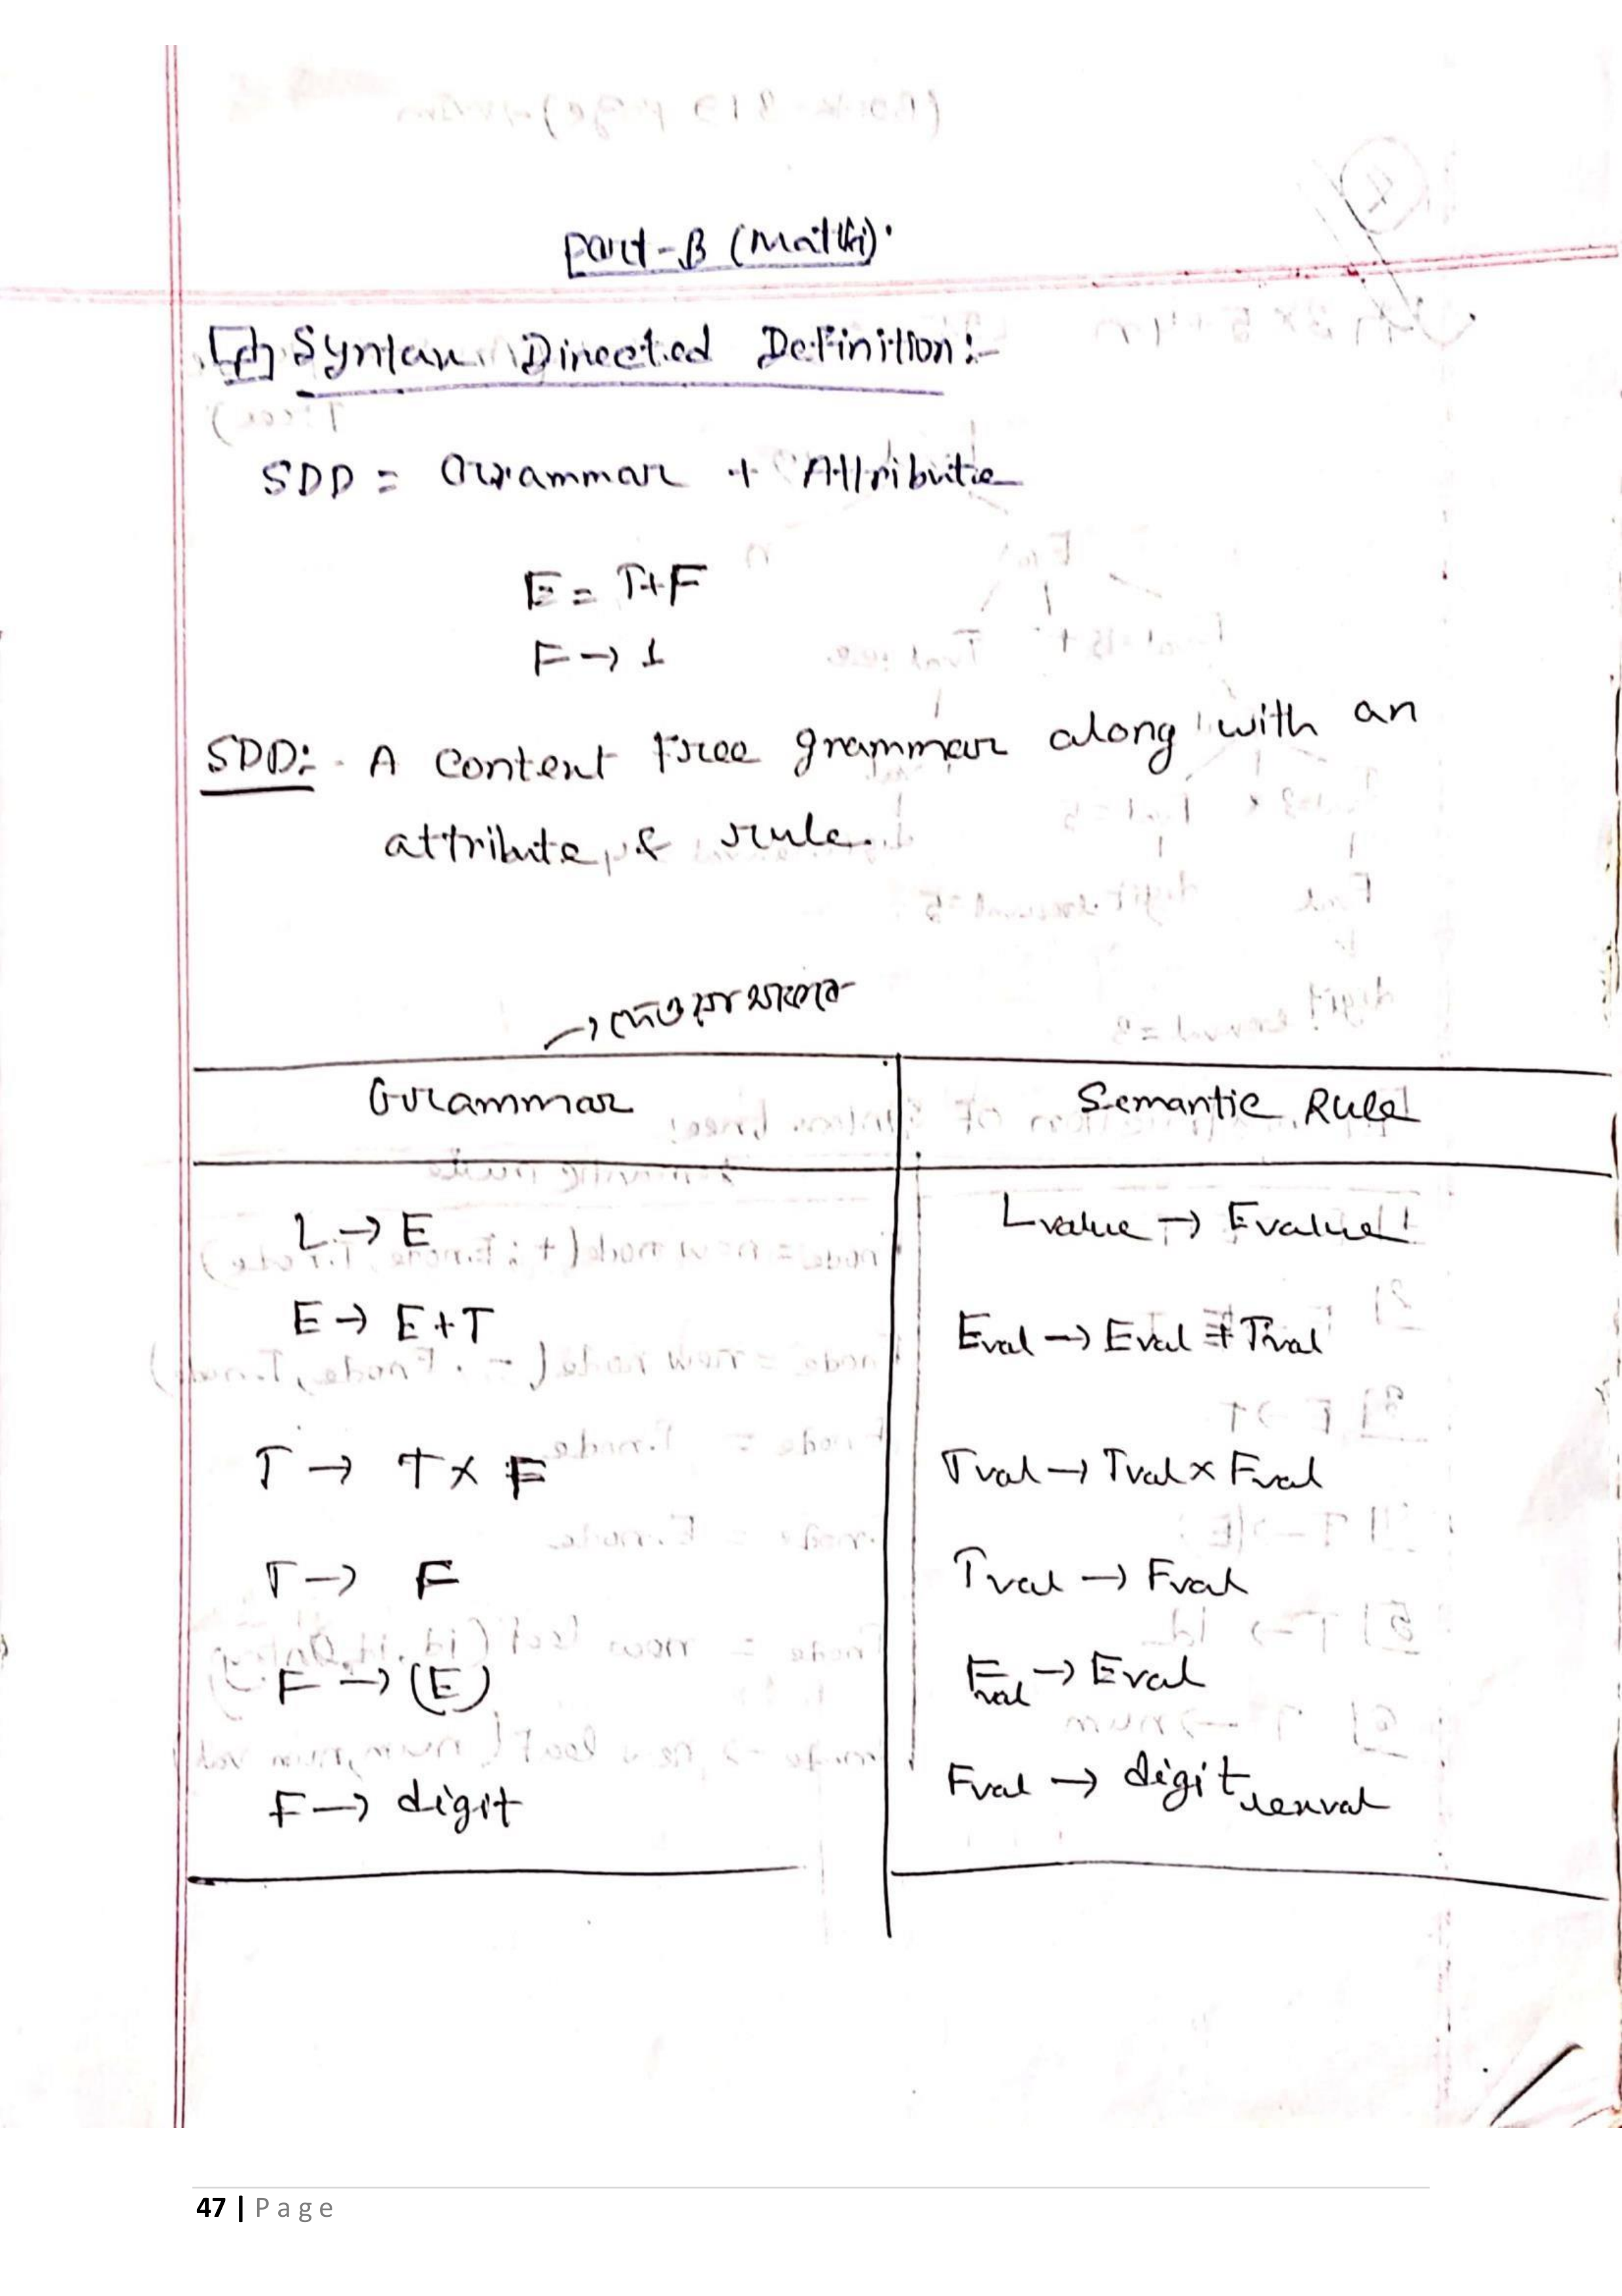 Part-B (Math).
Syntax Directed Definition:-
SDD = Grammar + Attribute
E = T+F
F → 1
SDD:- A Context Free grammar along with an
attribute & rule.
→ দেওয়া থাকবে
Grammar Semantic Rule
L → E Lvalue → Evalue
E → E+T Eval → Eval + Tval
T → T x F Tval → Tval x Fval
T → F Tval → Fval
F → (E) Fval → Eval
F → digit Fval → digit lexval
47 | Page